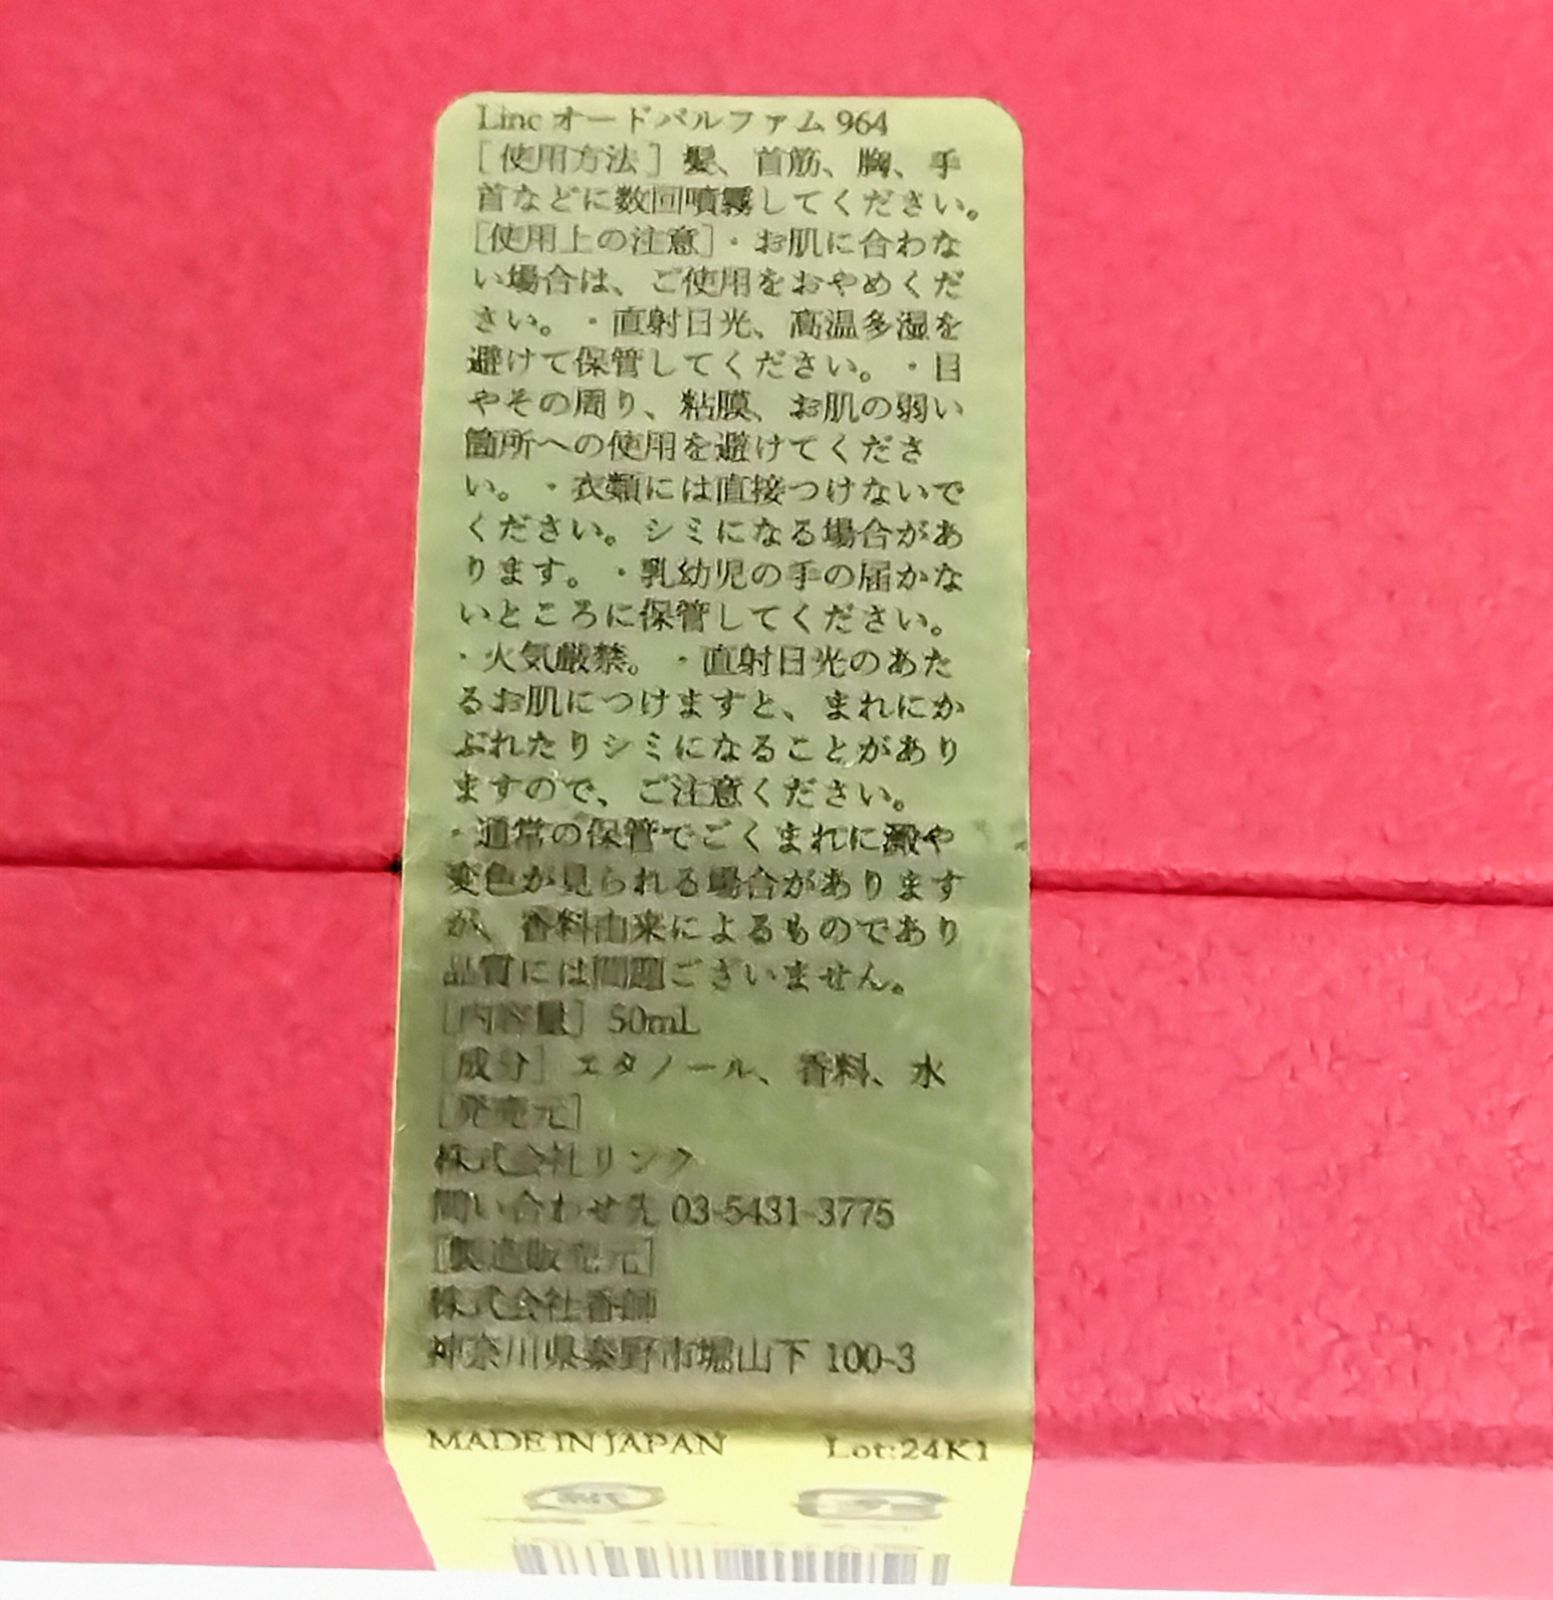 Linc オードパルファム 964
[使用方法] 髪、首筋、胸、手
首などに数回噴霧してください。
[使用上の注意]・お肌に合わな
い場合は、ご使用をおやめくだ
さい。・直射日光、高温多湿を
避けて保管してください。・目
やその周り、粘膜、お肌の弱い
箇所への使用を避けてくださ
い。・衣類には直接つけないで
ください。シミになる場合があ
ります。・乳幼児の手の届かな
いところに保管してください。
・火気厳禁。・直射日光のあた
るお肌につけますと、まれにか
ぶれたりシミになることがあり
ますので、ご注意ください。
・通常の保管でごくまれに澱や
変色が見られる場合があります
が、香料由来によるものであり
品質には問題ございません。
[内容量] 50mL
[成分] エタノール、香料、水
[発売元]
株式会社リンク
問い合わせ先 03-5431-3775
[製造販売元]
株式会社香師
神奈川県秦野市堀山下 100-3
MADE IN JAPAN Lot:24K1